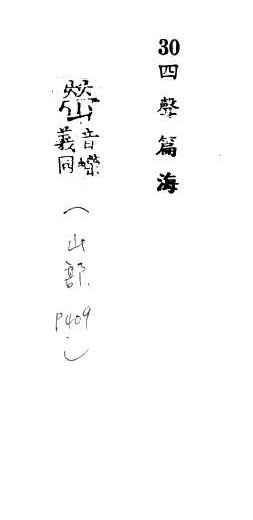 30四聲篇海
音嶸
義同
(山部. P409.)